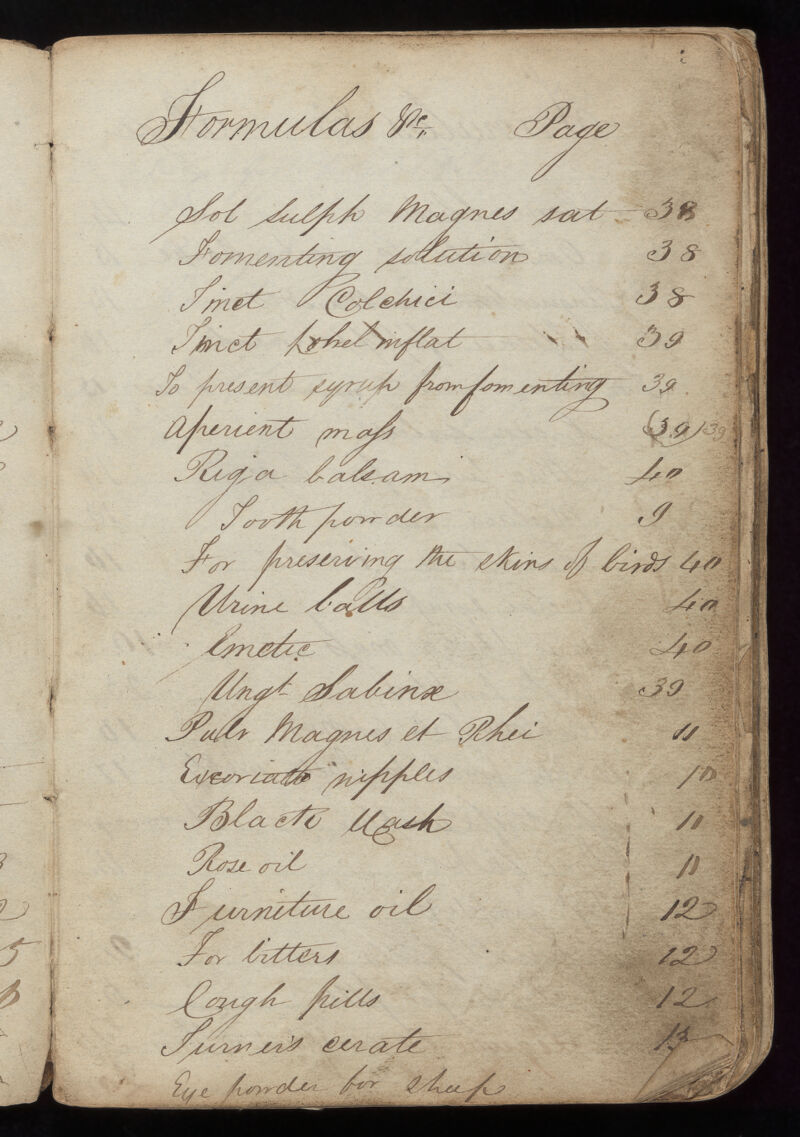 Formulas &c., Page
Sol sulph Magnes sat 38
Fomenting solution 38
Tinct Colchici 38
Tinct Lobel inflat 39
To present syrup from fomenting 39
Aperient mass (39) 139
Riga balsam 40
Tooth powder 9
For preserving the skins of birds 40
Urine balls 40
Emetic 40
Ungt Sabinæ 39
Pulv Magnes et Rhei 11
Excoriate nipples 10
Black Wash 11
Rose oil 11
Furniture oil 12
For bitters 12
Cough pills 12
Turner's cerate 13
Eye powder for sheep